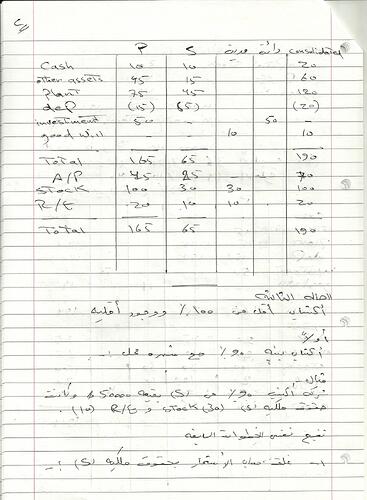 P S مدينة دائنة consolidated
Cash 10 10 20
other assets 45 15 60
plant 75 45 120
dep (15) (5) (20)
investment 50 - 50 -
good will - - 10 10
Total 165 65 190
A/P 45 25 - 70
stock 100 30 30 100
R/E 20 10 10 20
Total 165 65 190
الحالة الثانية
اكتساب أقل من 100% ووجود أقلية
أولاً
اكتساب بنسبة 90% مع شهرة محل :-
مثال
شركة اكتسبت 90% من (S) بقيمة 50000 $ وكانت
حقوق ملكية (S) stock (30) و R/E (10).
نتبع نفس الخطوات السابقة
1- غلق حساب الاستثمار بحقوق ملكية (S) :-